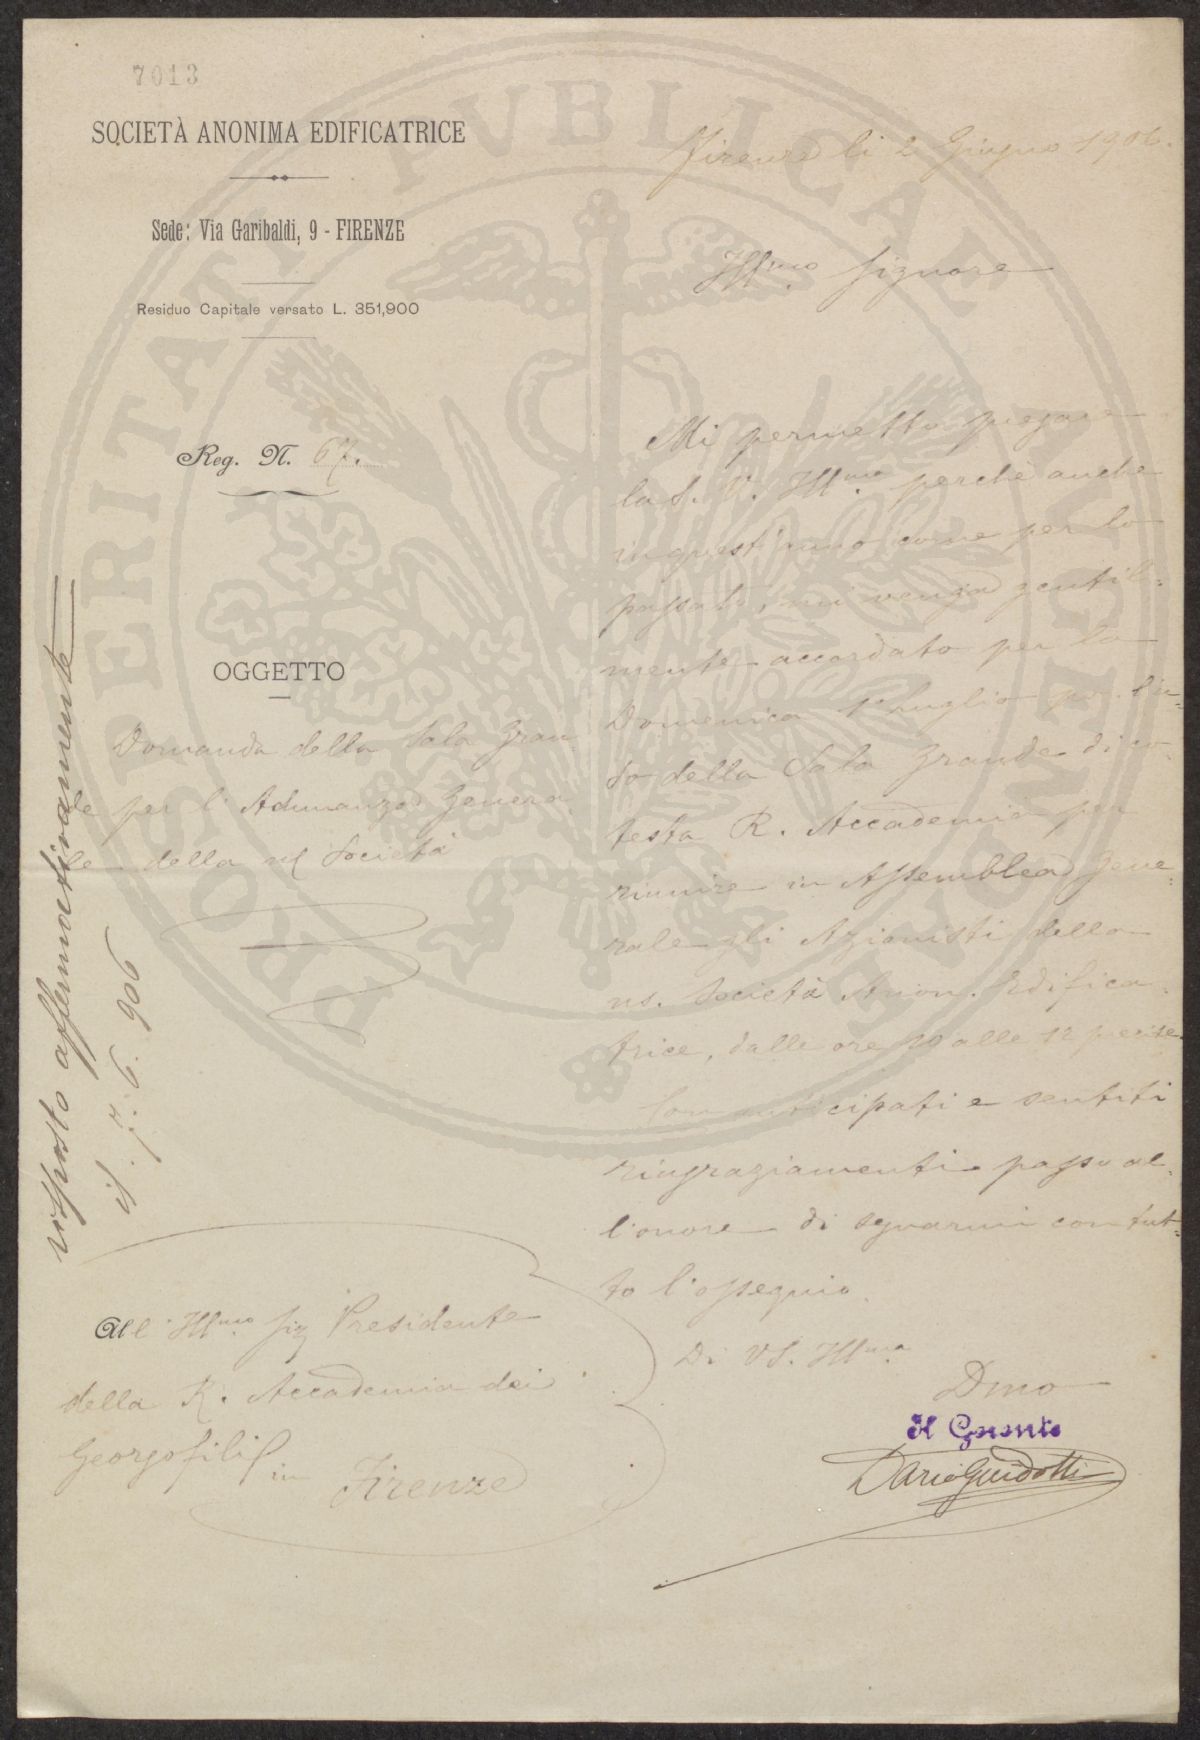 7013
SOCIETÀ ANONIMA EDIFICATRICE
Sede: Via Garibaldi, 9 - FIRENZE
Residuo Capitale versato L. 351,900
Reg. N. 67.
OGGETTO
Domanda della Sala Gran
de per l'Adunanza Genera
le della ns Società
risposto affermativamente
il 7. 6. 906
All' Illmo Sig Presidente
della R. Accademia dei
Georgofili
in Firenze
Firenze li 2 Giugno 1906.
Illmo Signore
Mi permetto pregare
la S. V. Illma perchè anche
in quest'anno come per lo
passato, mi venga gentil-
mente accordato per la
Domenica 1° Luglio p.v. l'u-
so della Sala Grande di co-
testa R. Accademia per
riunire in Assemblea Gene-
rale gli Azionisti della
ns. Società Anon. Edifica-
trice, dalle ore 10 alle 12 precise.
Con anticipati e sentiti
ringraziamenti passo al-
l'onore di segnarmi con tut-
to l'ossequio.
Di VS. Illma
Dmo
Il Gerente
Dario Guidotti
PROSPERITATI PUBLICAE AUGENDAE